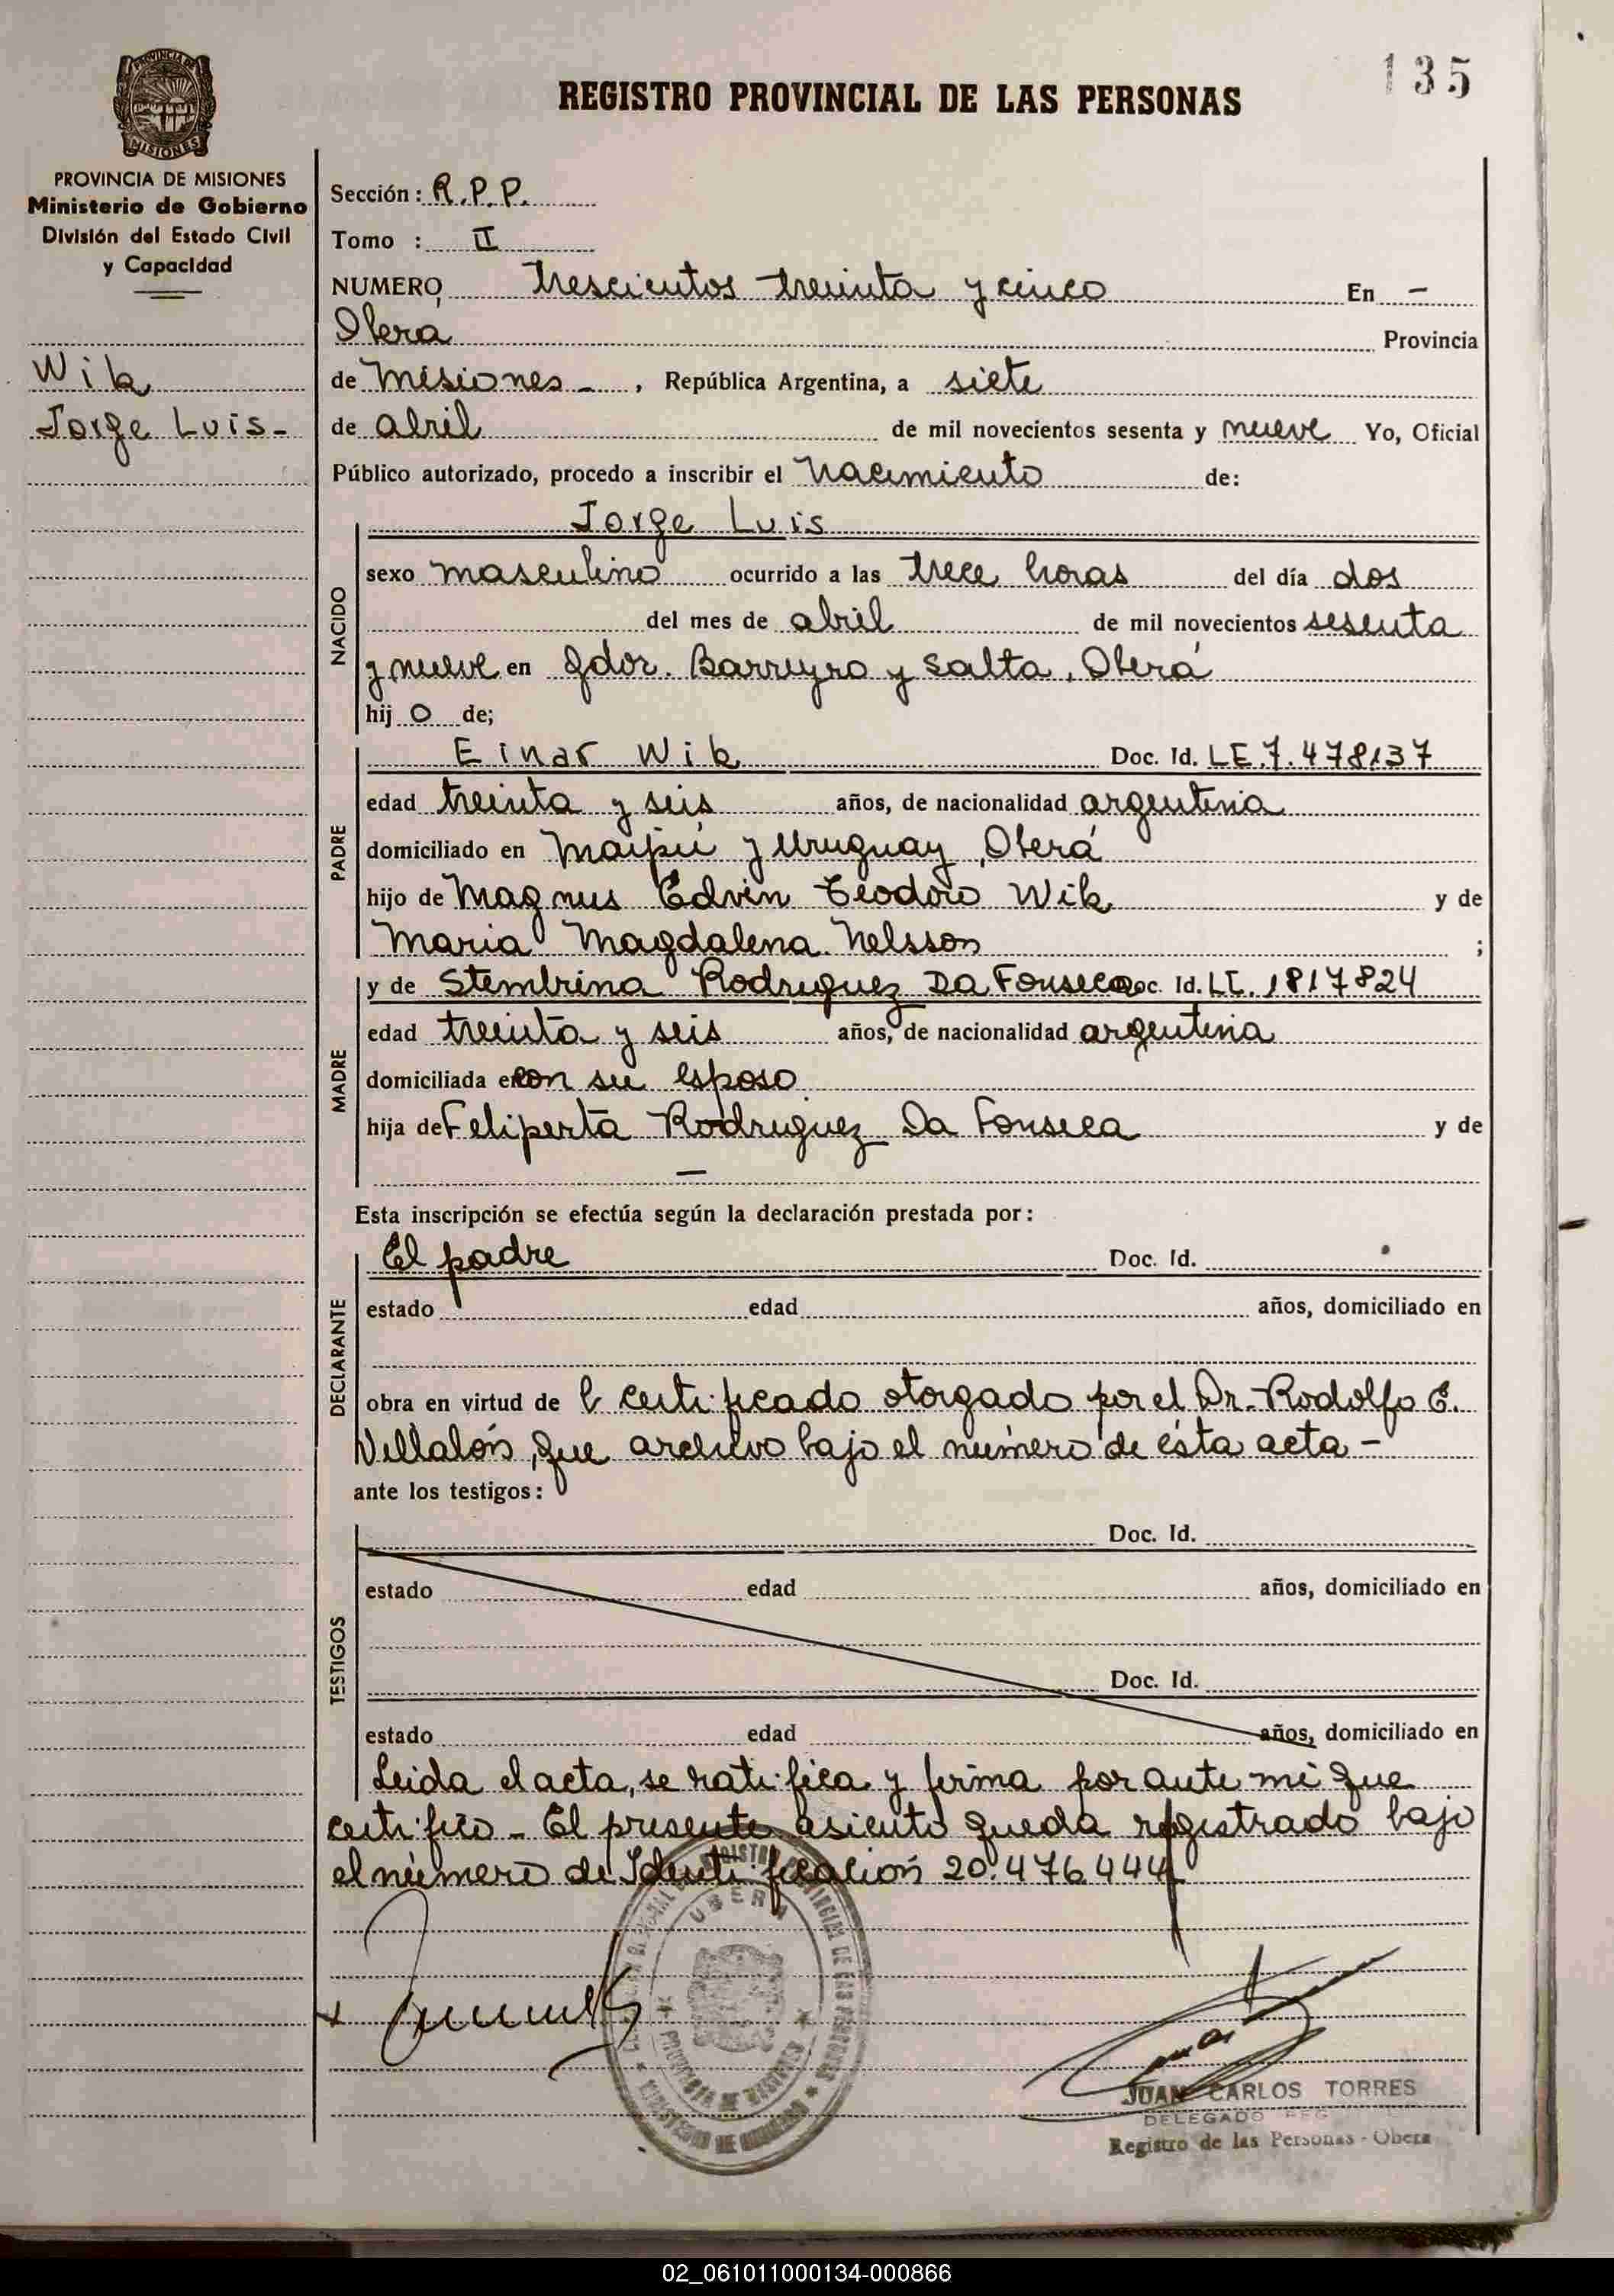 135
REGISTRO PROVINCIAL DE LAS PERSONAS
PROVINCIA DE MISIONES
Ministerio de Gobierno
División del Estado Civil
y Capacidad
Wik
Jorge Luis-
Sección: R.P.P.
Tomo : II
NUMERO trescientos treinta y cinco En -
Oberá Provincia
de Misiones - , República Argentina, a siete
de abril de mil novecientos sesenta y nueve Yo, Oficial
Público autorizado, procedo a inscribir el nacimiento de:
Jorge Luis
NACIDO
sexo masculino ocurrido a las trece horas del día dos
del mes de abril de mil novecientos sesenta
y nueve en Gdor. Barreyro y Salta, Oberá
hij o de;
PADRE
Einar Wik Doc. Id. LE.7.478137
edad treinta y seis años, de nacionalidad argentina
domiciliado en Maipú y Uruguay, Oberá
hijo de Magnus Edvin Teodoro Wik y de
Maria Magdalena Nelsson ;
MADRE
y de Stembrina Rodriguez Da Fonseca Doc. Id. LC. 1817824
edad treinta y seis años, de nacionalidad argentina
domiciliada en con su esposo
hija de Feliperta Rodriguez Da Fonseca y de
—
Esta inscripción se efectúa según la declaración prestada por:
DECLARANTE
El padre Doc. Id.
estado edad años, domiciliado en
obra en virtud de certificado otorgado por el Dr. Rodolfo E.
Villalón, que archivo bajo el número de ésta acta -
ante los testigos:
TESTIGOS
Doc. Id.
estado edad años, domiciliado en
Doc. Id.
estado edad años, domiciliado en
Leida el acta, se ratifica y firma por ante mi que
certifico - El presente asiento queda registrado bajo
el número de Identificación 20.476.444
OBERA
PROVINCIA DE MISIONES
MINISTERIO DE GOBIERNO
JUAN CARLOS TORRES
DELEGADO
Registro de las Personas - Obera
02_061011000134-000866